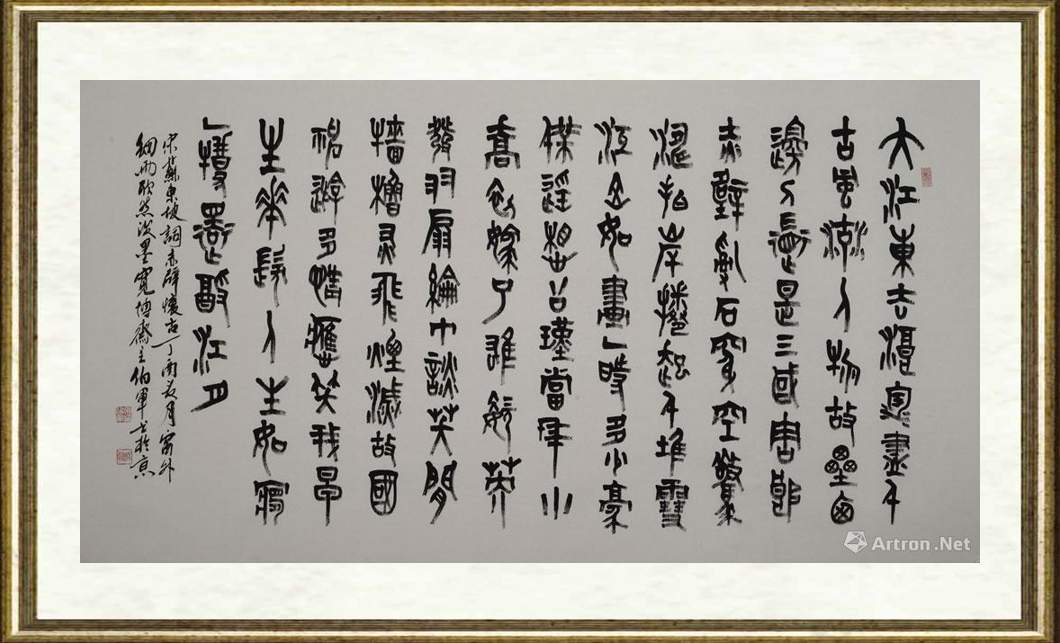 大江東去浪淘盡千
古風流人物故壘西
邊人道是三國周郎
赤壁亂石穿空驚
濤拍岸捲起千堆雪
江山如畫一時多少豪
傑遥想公瑾當年小
喬初嫁了雄姿英
發羽扇綸巾談笑間
檣櫓灰飛煙滅故國
神遊多情應笑我早
生華髮人生如夢
一尊還酹江月
宋蘇東坡詞赤壁懷古丁酉夏月窗外
細雨欣然淡墨寬博齋主伯軍書於京
Artron.Net